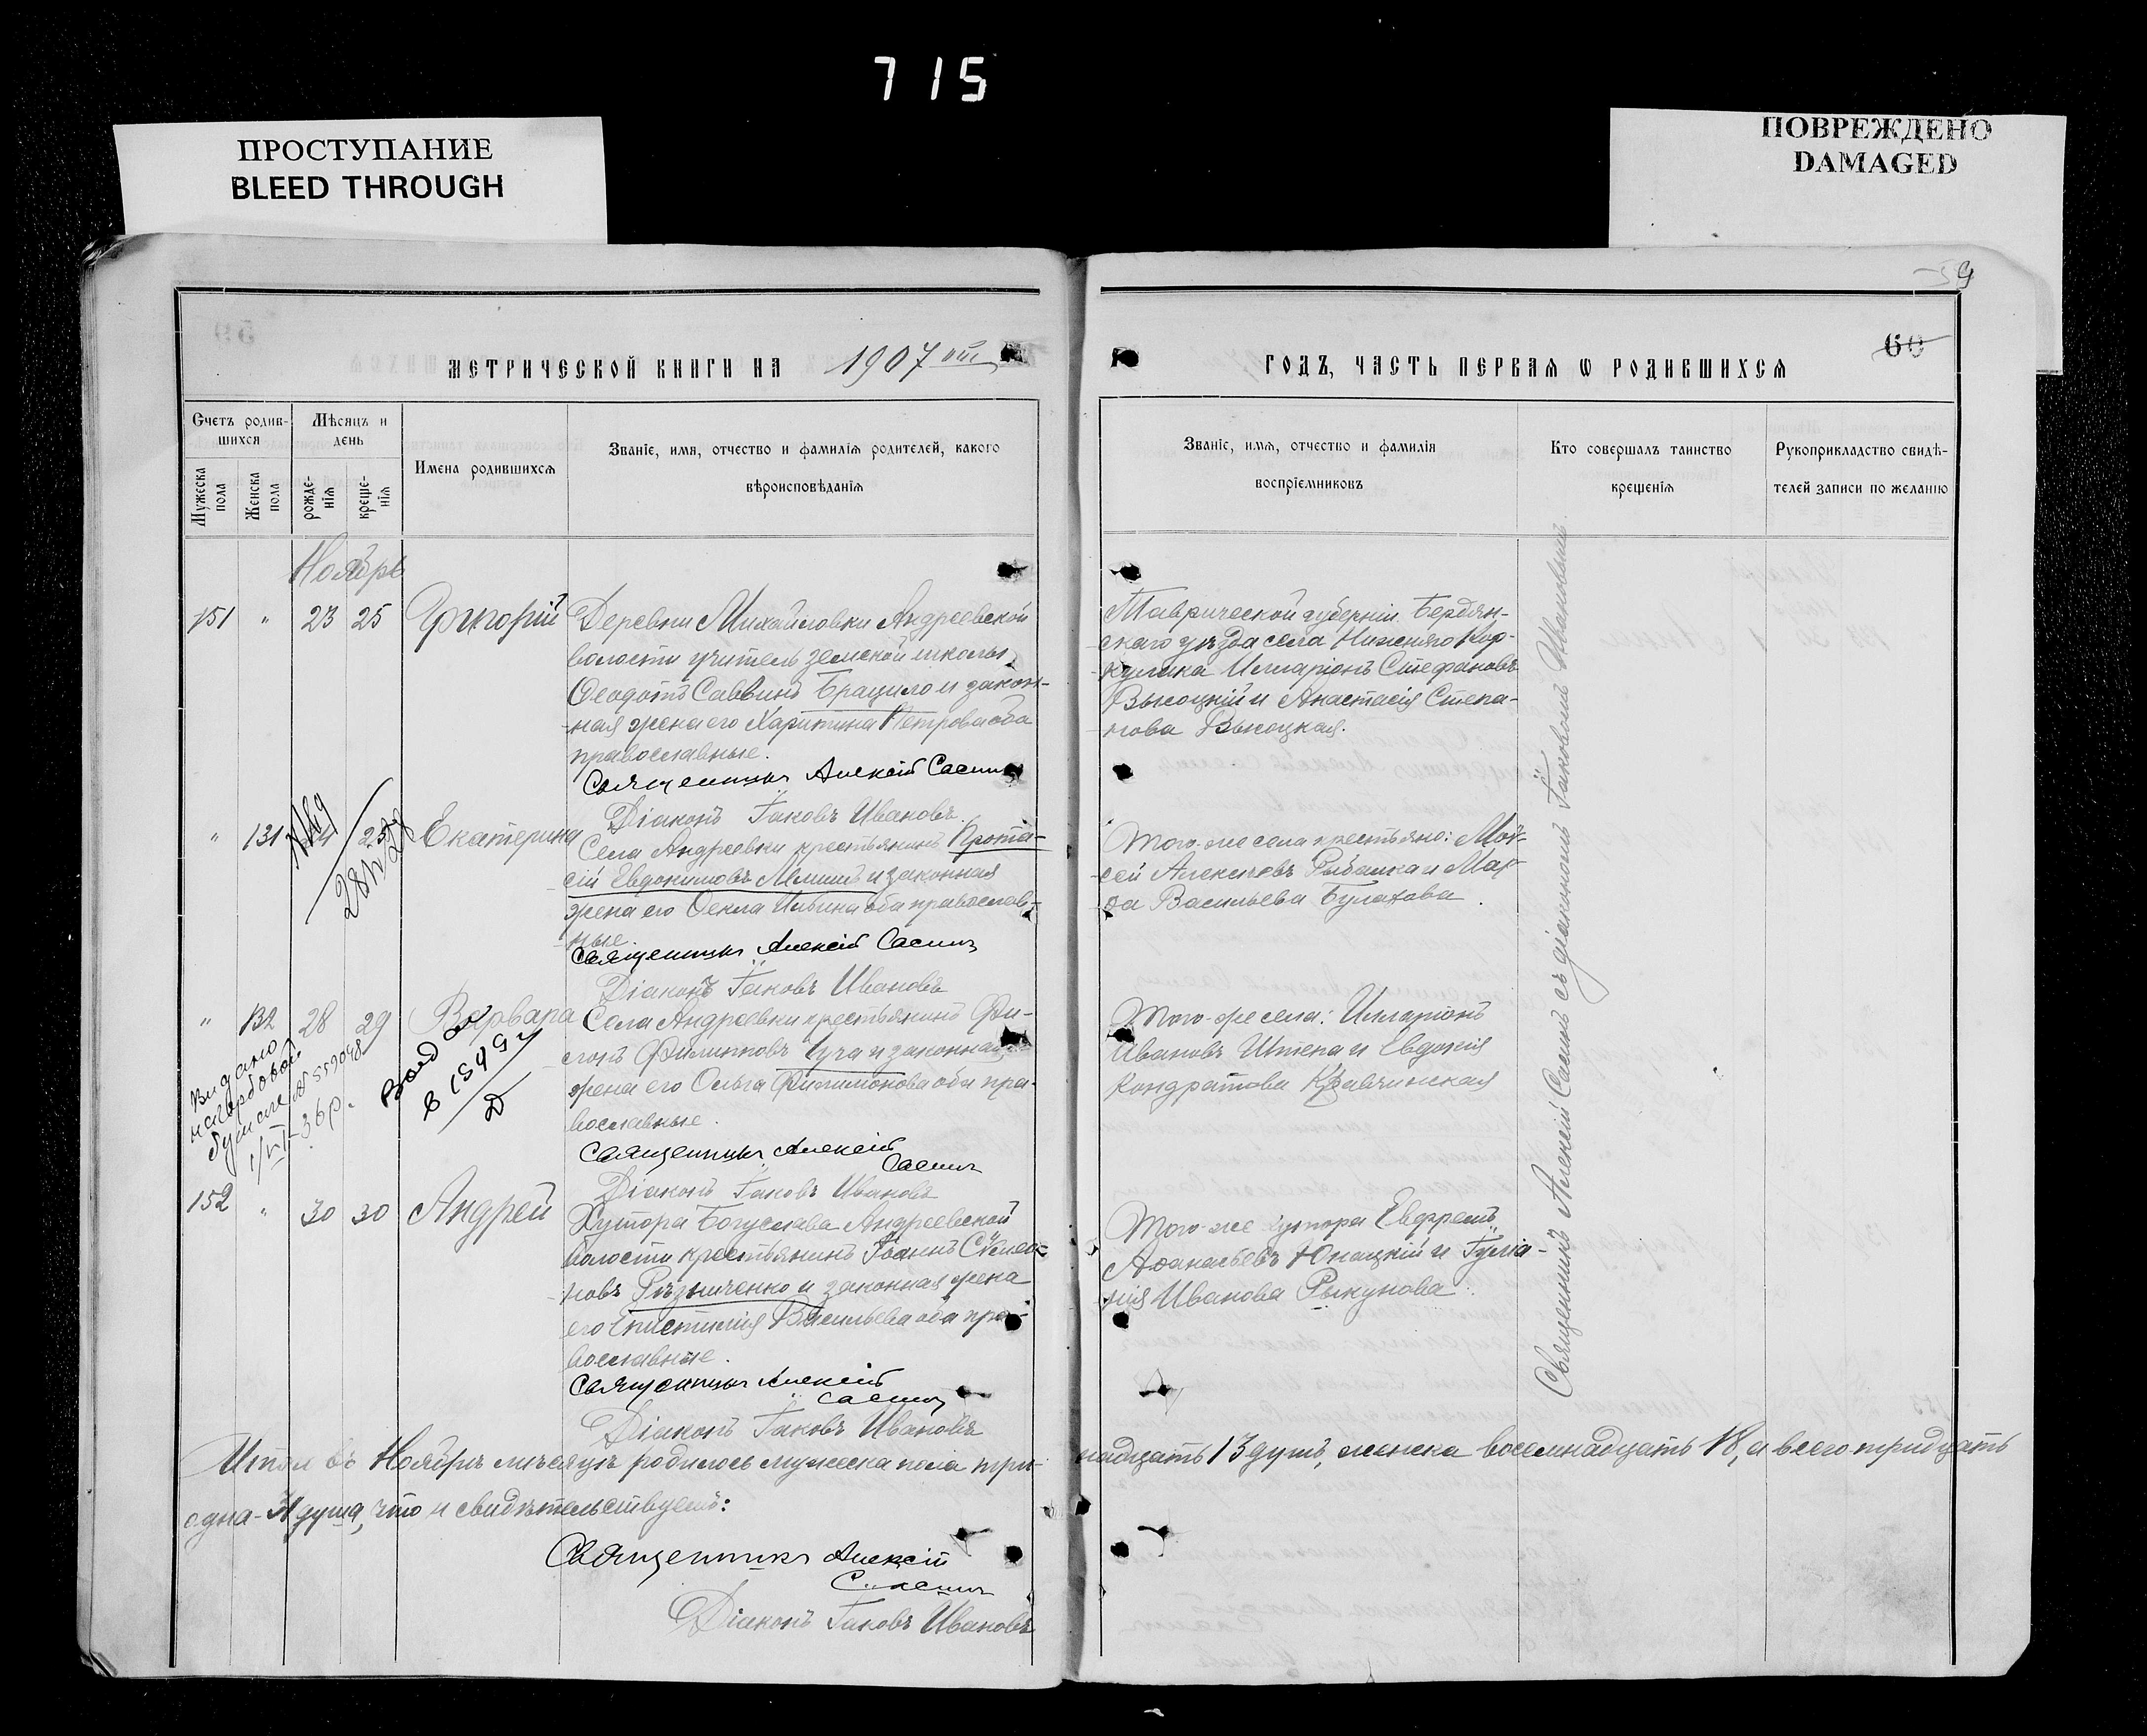 715
ПРОСТУПАНИЕ
BLEED THROUGH
ПОВРЕЖДЕНО
DAMAGED
59
60
МЕТРИЧЕСКОЙ КНИГИ НА 1907 ый
ГОДЪ, ЧАСТЬ ПЕРВАЯ Ѡ РОДИВШИХСЯ
Счетъ родив-
шихся
Мужеска пола
Женска пола
Мѣсяцъ и
день
рожде-
нія
креще-
нія
Имена родившихся
Званіе, имя, отчество и фамилія родителей, какого
вѣроисповѣданія
Званіе, имя, отчество и фамилія
воспріемниковъ
Кто совершалъ таинство
крещенія
Рукоприкладство свидѣ-
телей записи по желанію
Ноябрь
151 " 23 25 Григорій
Деревни Михайловки Андреевской
волости учитель земской школы
Ѳеодотъ Саввинъ Брацило и закон-
ная жена его Харитина Петрова оба
православные.
Священникъ Алексій Саенко
Діаконъ Іаковъ Ивановъ
Таврической губерніи Бердян-
скаго уѣзда села Нижняго Кур-
кулака Илларіонъ Стефановъ
Высоцкій и Анастасія Степа-
нова Высоцкая.
" 131 24 25 Екатерина
Села Андреевки крестьянинъ Прота-
сій Евдокимовъ и законная
жена его Ѳекла Ильина оба православ-
ные.
Священникъ Алексій
Діаконъ Іаковъ Ивановъ
Того-же села крестьяне: Мой-
сей Алексѣевъ Рыбалка и Мар-
ѳа Васильева Булахова.
" 132 28 29 Варвара
Села Андреевки крестьянинъ Фи-
липпъ Филипповъ и законная
жена его Ольга Филимонова оба пра-
вославные.
Священникъ Алексій
Діаконъ Іаковъ Ивановъ
Того-же села: Илларіонъ
Ивановъ Штепа и Евдокія
Кондратова Кравчинская
Видано
на гербовой
бумаге № 559048
1/VI-36р.
152 " 30 30 Андрей
Хутора Богуслава Андреевской
волости крестьянинъ Іоаннъ Симео-
новъ Рѣзниченко и законная жена
его Епистимія Васильева оба пра-
вославные.
Священникъ Алексій
Діаконъ Іаковъ Ивановъ
Того-же хутора Евфремъ
Аѳанасьевъ Юнацкій и Іуліа-
нія Иванова Рыкунова.
Священникъ Алексій съ діакономъ Іаковомъ Ивановымъ.
Итого въ Ноябрѣ мѣсяцѣ родилось мужеска пола три-
надцать 13 душъ, женска восемнадцать 18, а всего тридцать
одна-31 душа, что и свидѣтельствуемъ:
Священникъ Алексій
Діаконъ Іаковъ Ивановъ